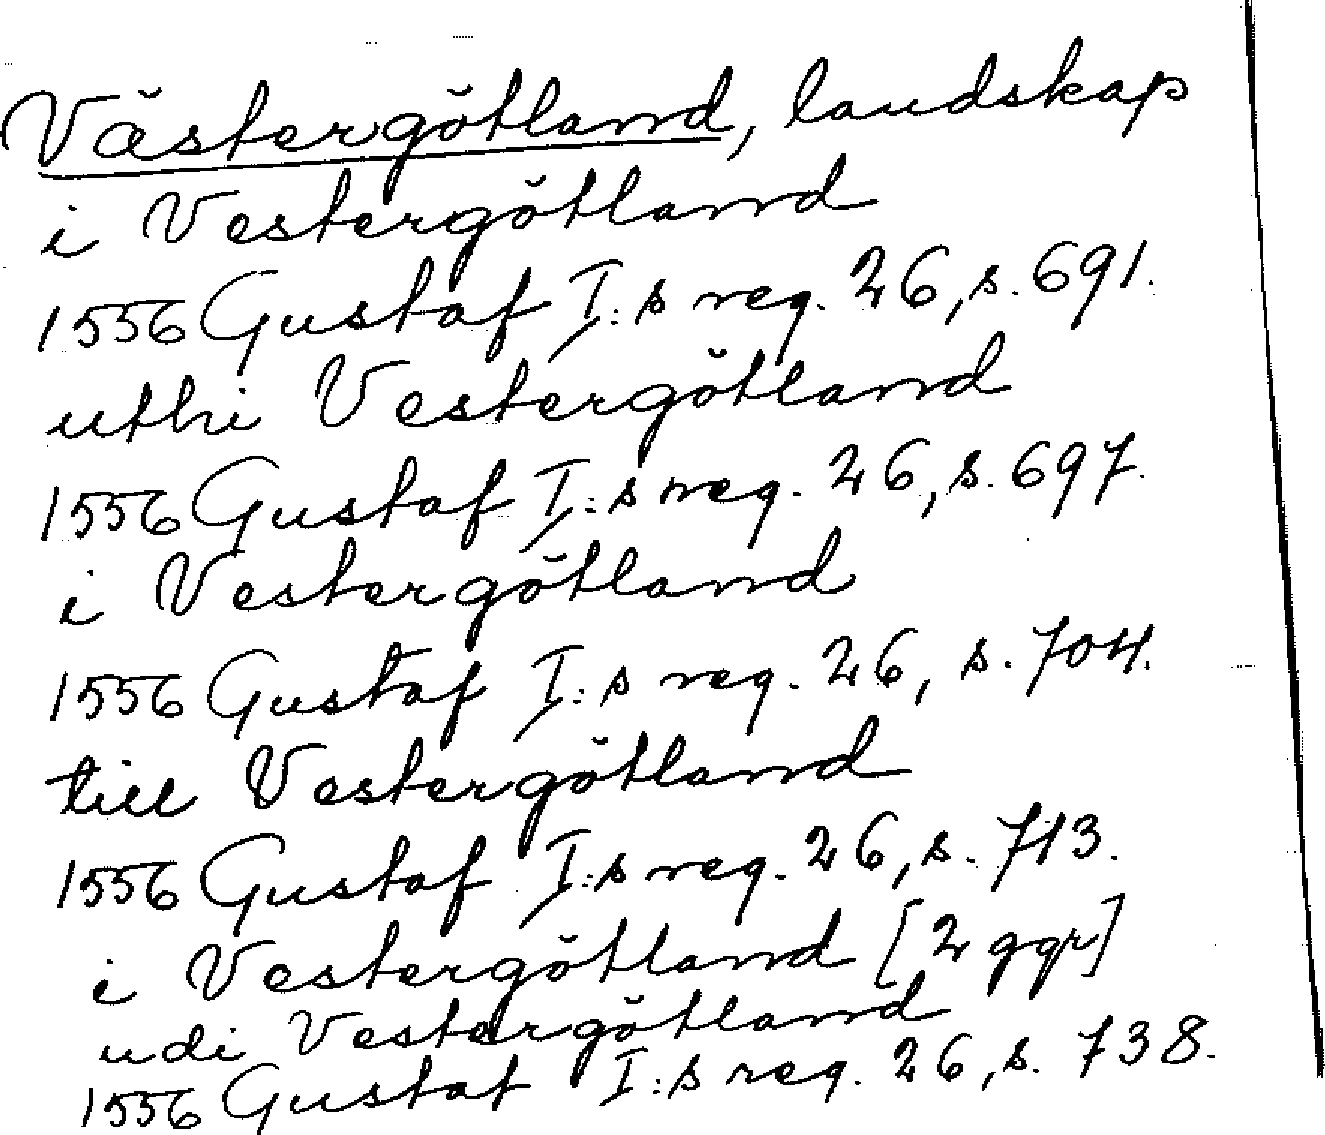 Västergötland, landskap
i Vestergötland
1556 Gustaf I:s reg. 26, s. 691.
uthi Vestergötland
1556 Gustaf I:s reg. 26, s. 697.
i Vestergötland
1556 Gustaf I:s reg. 26, s. 704.
till Vestergötland
1556 Gustaf I:s reg. 26, s. 713.
i Vestergötland [2 ggr]
udi Vestergötland
1556 Gustaf I:s reg. 26, s. 738.